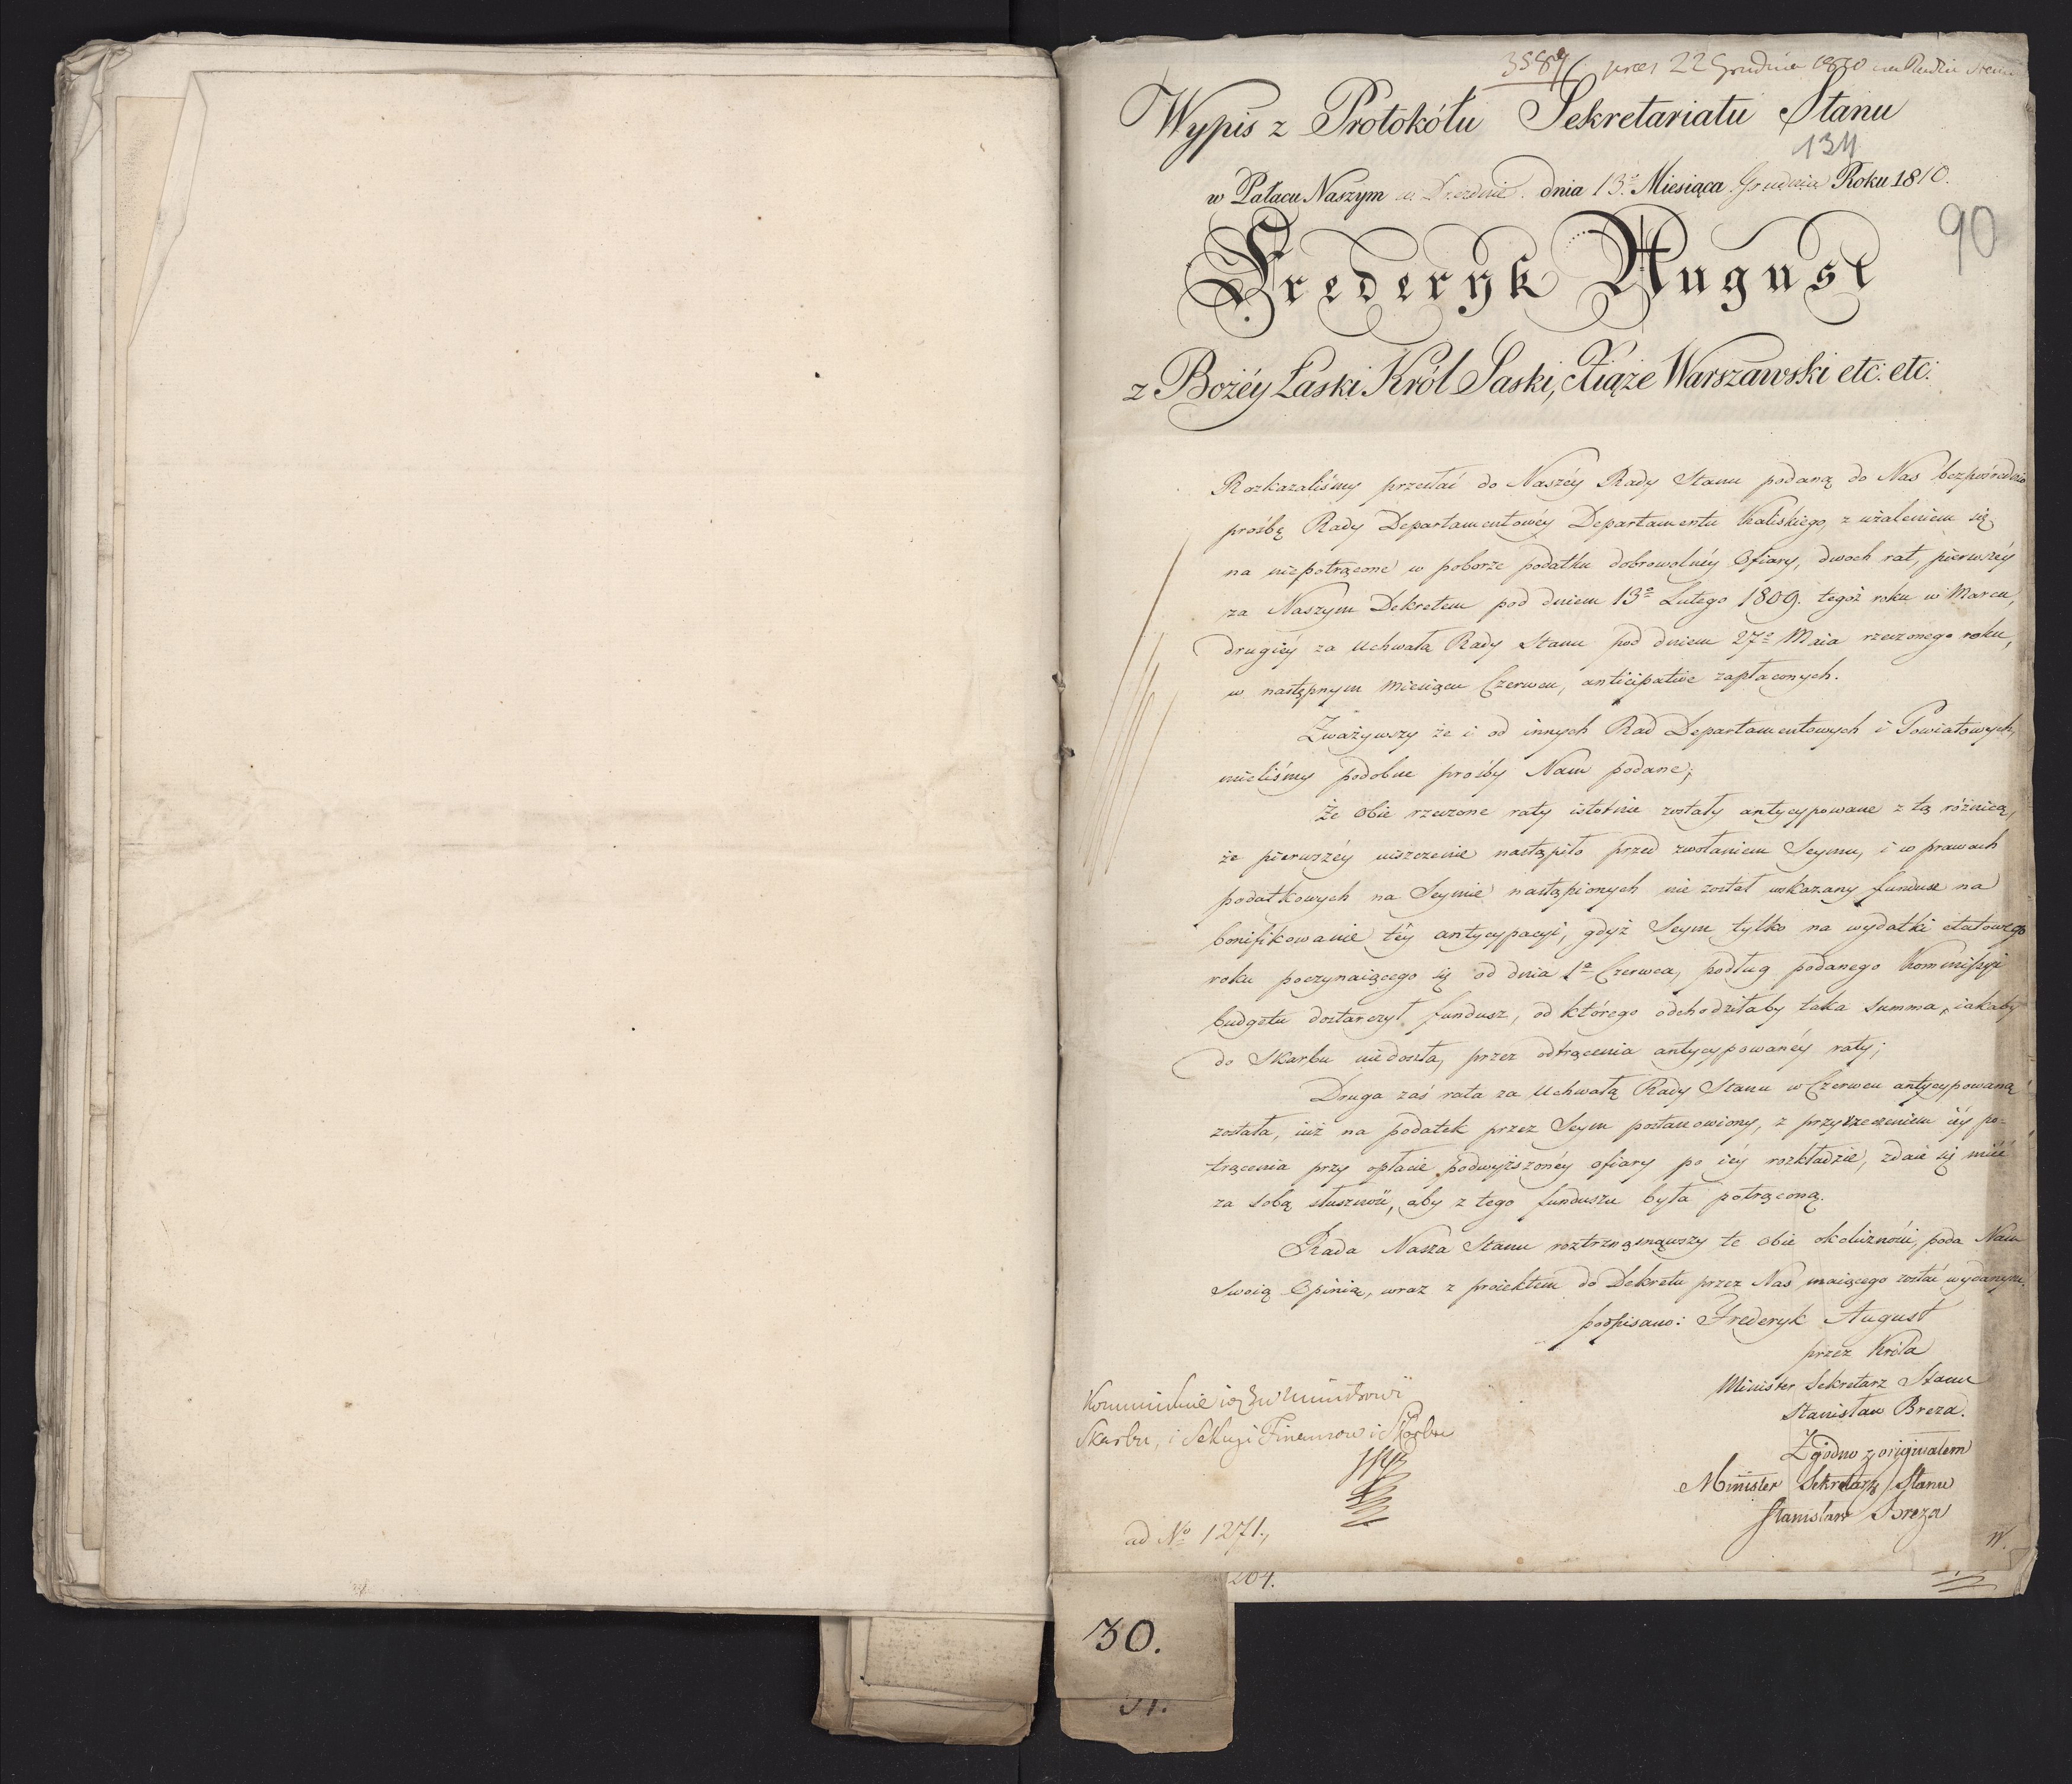 3589 22 Grudnia 1810 na Radzie
Wypis z Protokółu Sekretariatu Stanu
134
w Pałacu Naszym w Dreznie. dnia 13º Miesiąca Grudnia Roku 1810.
90
Fryderyk August
z Bożéy Łaski Król Saski, Xiąże Warszawski etc. etc:
Rozkazaliśmy przesłać do Naszéy Rady Stanu podaną do Nas bezpośrednio
prośbę Rady Departamentowéy Departamentu Kaliskiego, z użaleniem się
na niepotrącone w poborze podatku dobrowolnéy Ofiary, dwoch rat, pierwszéy
za Naszym Dekretem pod dniem 13º Lutego 1809. tegoż roku w Marcu,
drugiéy za Uchwałą Rady Stanu pod dniem 27º Maia rzeczonego roku,
w następnym Miesiącu Czerwcu, anticipative zapłaconych.
Zważywszy że i od innych Rad Departamentowych i Powiatowych,
mieliśmy podobne prośby Nam podane;
Że obie rzeczone raty istotnie zostały antycypowane z tą różnicą,
że pierwszéy uiszczenie nastąpiło przed zwołaniem Seymu, i w prawach
podatkowych na Seymie nastąpionych nie został wskazany fundusz na
bonifikowanie téy antycypacyi, gdyż Seym tylko na wydatki etatowego
roku poczynaiącego się od dnia 1º Czerwca, podług podanego Kommissyi
budgetu dostarczył fundusz, od którego odchodziłaby taka Summa, iakaby
do Skarbu niedoszła, przez odtrącenia antycypowanéy raty;
Druga zaś rata za Uchwałą Rady Stanu w Czerwcu antycypowaną
została, iuż na podatek przez Seym postanowiony, z przyrzeczeniem iéy po=
trącenia przy opłacie podwyższonéy ofiary po iéy rozkładzie, zdaie się mieć
za sobą słuszność, aby z tego funduszu była potrąconą.
Rada Nasza Stanu roztrząsnąwszy te obie okoliczności, poda Nam
Swoią Opinią, wraz z proiektem do Dekretu przez Nas maiącego zostać wydanym.
podpisano: Fryderyk August
przez Króla
Minister Sekretarz Stanu
Stanisław Breza.
Kommunikuie się JW Ministrowi
Skarbu, i Sekcyi Finansow i Skarbu
Zgodno z originałem
Minister Sekretarz Stanu
Stanisław Breza
ad Nº 1271.
W.
204.
30.
31.